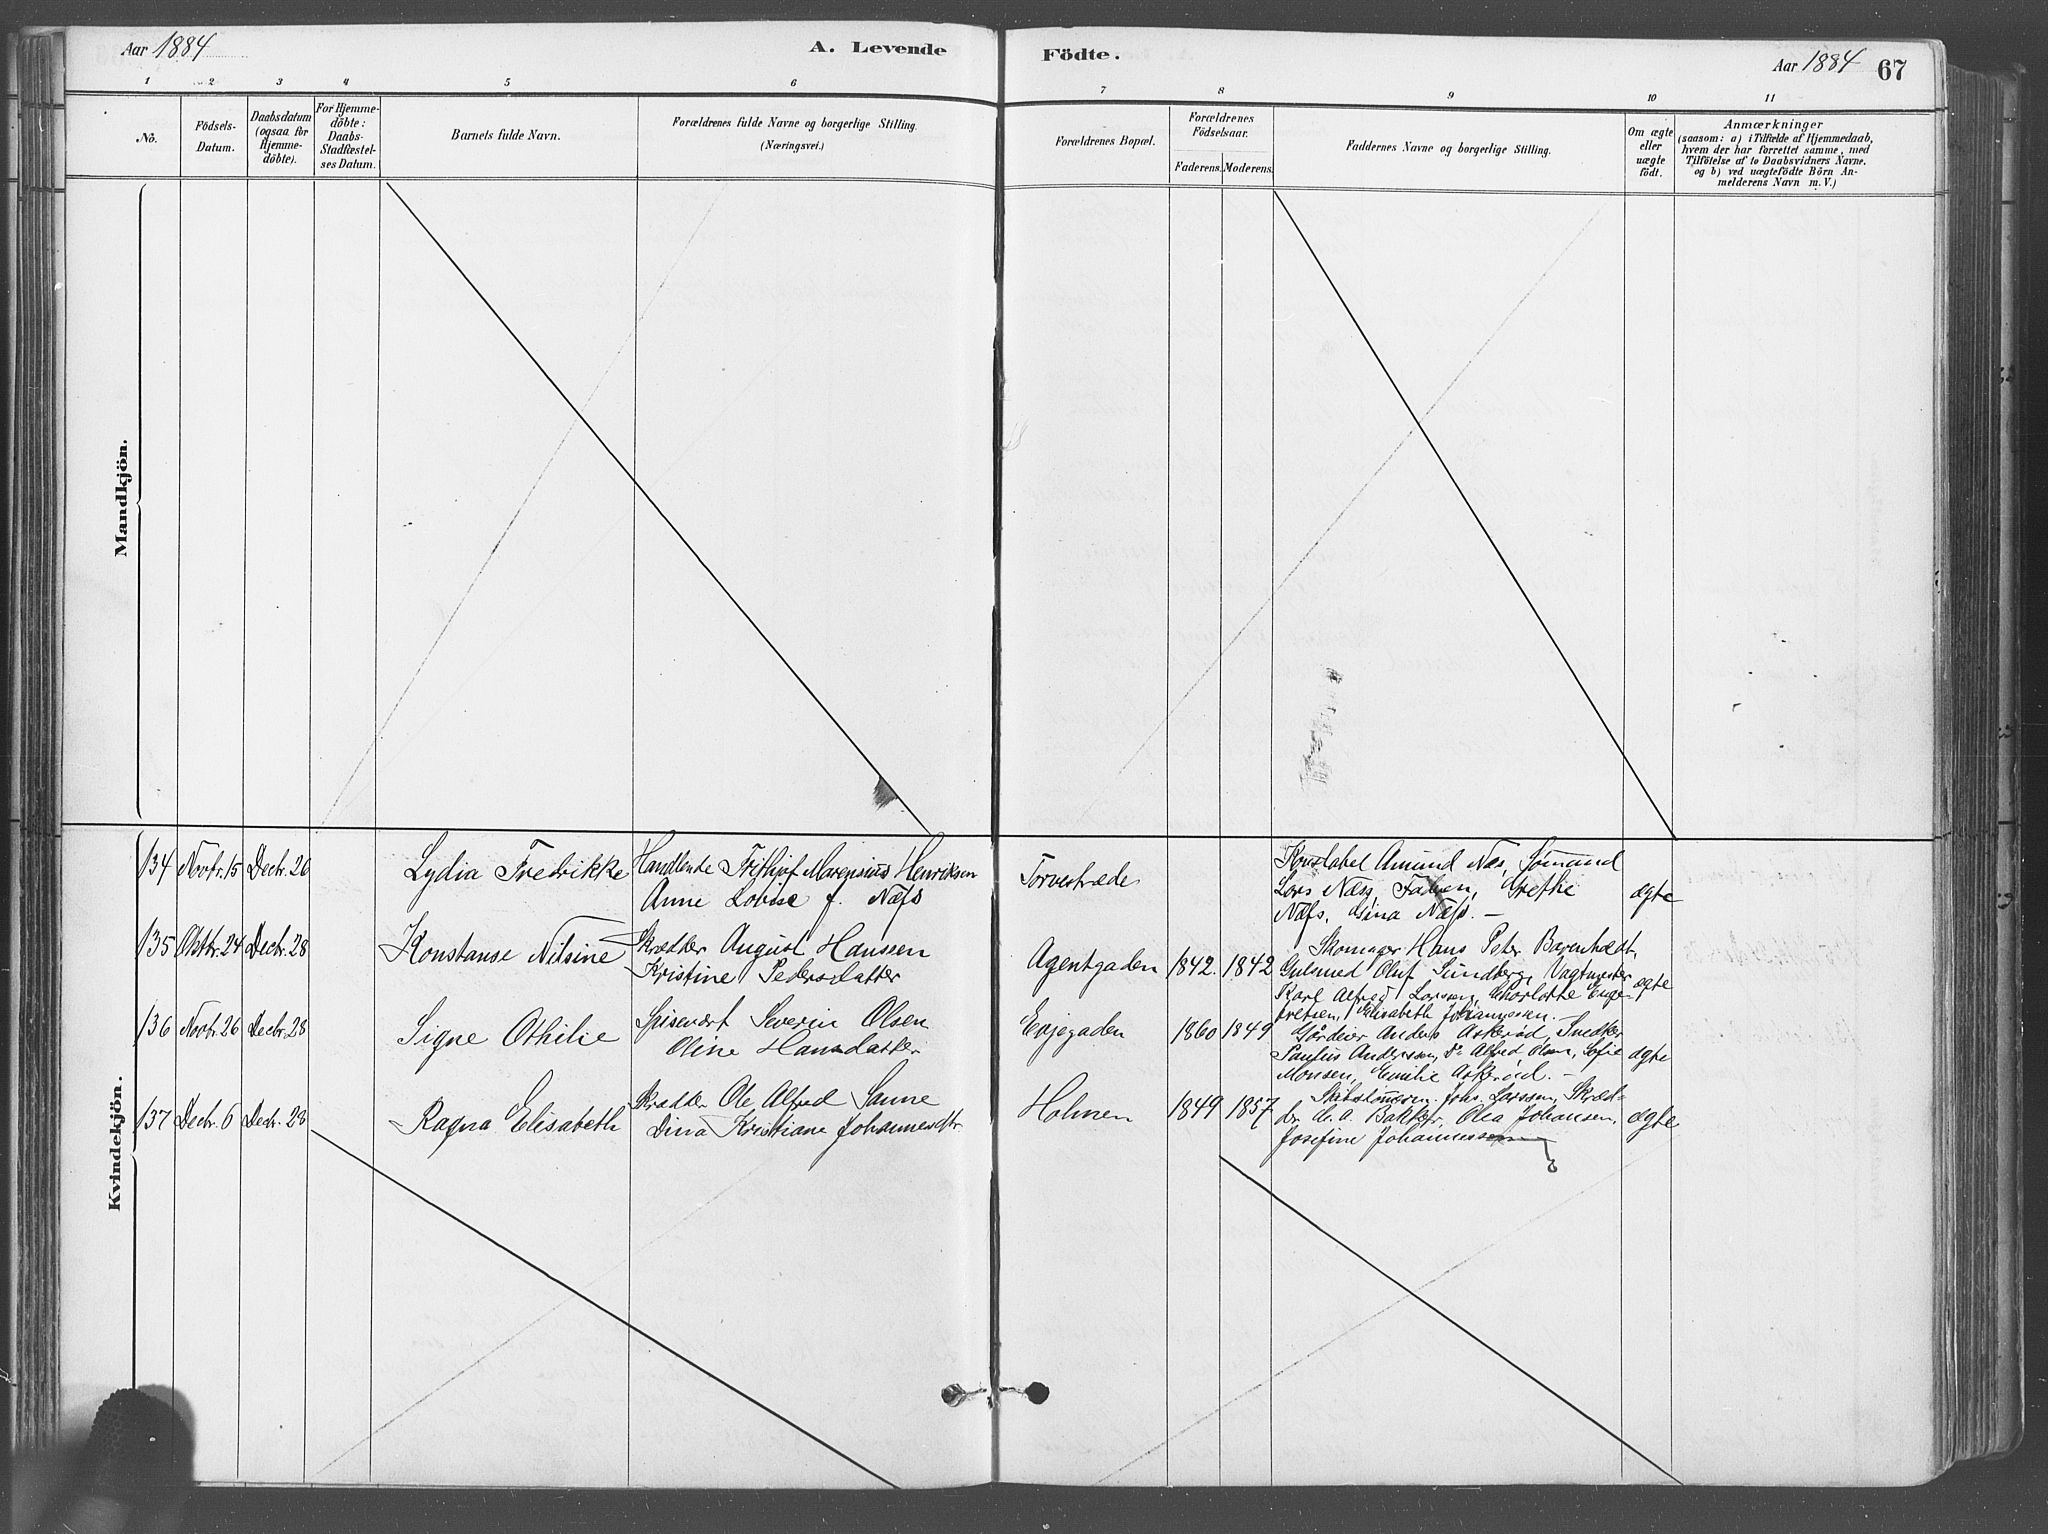 Aar 1884
A. Levende
Födte.
Aar 1884
67
1 2 3 4 5 6 7 8 9 10 11
Nö.
Födsels-
Datum.
Daabsdatum
(ogsaa for
Hjemme-
döbte).
For Hjemme-
döbte:
Daabs-
Stadfæstel-
ses Datum.
Barnets fulde Navn.
Forældrenes fulde Navne og borgerlige Stilling.
(Næringsvei.)
Forældrenes Bopæl.
Forældrenes
Födselsaar.
Faderens. Moderens.
Faddernes Navne og borgerlige Stilling.
Om ægte
eller
uægte
födt.
Anmærkninger
(saasom: a) i Tilfælde af Hjemmedaab,
hvem der har forrettet samme, med
Tilföielse af to Daabsvidners Navne.
og b) ved uægtefödte Börn An-
melderens Navn m. V.)
Mandkjön.
Kvindekjön.
134 Novbr. 15 Decbr. 26 Lydia Fredrikke
Handlende Frithjof Marensius Henriksen
Anne Lovise f. Næss
Torvestræde
Konstabel Amund Næs, Sömand
Lars Næss, Faderen, Grethe
Næss, Gina Næss. —
ægte
135 Oktbr. 24 Decbr. 28 Konstanse Nilsine
Skrædder August Hanssen
Kristine Pedersdatter
Agentgaden 1842. 1842
Skomager Hans Peter
Gulsmed Oluf Sundberg, Vagtmester
Karl Alfred Larssen, Charlotte Enge-
bretsen, Elisabeth Johannessen. —
ægte
136 Novbr. 26 Decbr. 28 Signe Othilie
Spisevært Severin Olsen
Oline Hansdatter
Evjegaden 1860 1849
Gårdeier Anders Askeröd, Snedker
Paulus Anderssen, Do Alfred Olsen, Sofie
Monsen, Emilie Askeröd. —
ægte
137 Decbr. 6 Decbr. 28 Ragna Elisabeth
Skrædder Ole Alfred Sanne
Dina Kristiane Johannesdtr.
Holmen 1849 1857
Skibstömmerm. Johs. Larssen, Skræd-
der Bakker, Olea Johansen,
Josefine Johannessen
ægte